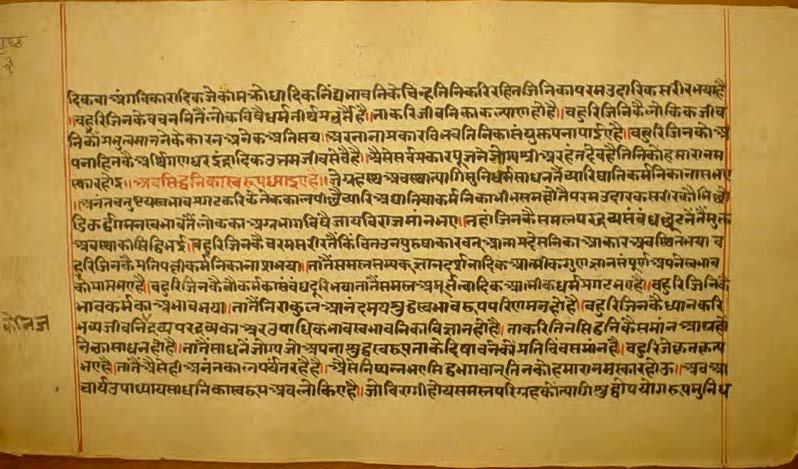 दिकवा अंगविकारादिकजेकामक्रोधादिकनिंद्यभावनिकेचिन्हतिनिकरिरहितजिनिकापरमउदारिकसरीरभयाहै
॥बहुरिजिनकेवचननितैंलोकविषैधर्मतीर्थप्रवर्त्तैहै॥ताकरिजीवनिकाकल्याणहोहै॥बहुरिजिनिकैलौकिकजीव
निकौंप्रभुत्वमाननेकेकारनअनेकअतिसय॥अरनानाप्रकारविभवतिनिकासंयुक्तपनापाईएहै॥बहुरिजिनकोंअ
पनाहितकेअर्थिगणधरइंद्रादिकउत्तमजीवसेवैहै॥ऐसैसर्वप्रकारपूजनेजोग्यश्रीअरहंतदेवहैतिनिकोंहमारानम
स्कारहोहु॥अबसिद्धनिकास्वरूपध्याईएहै॥जेगृहस्थअवस्थात्यागिमुनिधर्मसाधनतैंच्यारिघातिकर्मनिकानासभए
॥अनंतचतुष्टयस्वभावप्रगटकरिकेतेककालपीछैंच्यारिअघातियाकर्मनिकाभीभसमहोतैपरमउदारकसरीरकौंभीछो
डिऊर्द्धगमनस्वभावतैंलोककाअग्रभागविषैजायविराजमांनभए॥तहांजिनकैसमस्तपरद्रव्यसंबंधछूटनेतैंमुक्त
अवस्थाकीसिद्धिभई॥बहुरिजिनकैचरमसरीरतैंकिंचितऊनपुरुषाकारवत्आत्मप्रदेसनिकाआकारअवस्थितभया॥ब
हुरिजिनकैप्रतिपक्षीकर्मनिकानासभया॥तातैंसमस्तसम्यक्तज्ञानदर्शनादिकआत्मीकगुणज्ञानसंपूर्णअपनेस्वभाव
कौंप्राप्तभएहै॥बहुरिजिनकैनोकर्मकासंबंधदूरिभयातातैंसमस्तअमूर्त्तत्वादिकआत्मीकधर्मप्रगटभएहै॥बहुरिजिनिकै
भावकर्मकाअभावभया॥तातैंनिराकुलआनंदमयसुद्धस्वभावरूपपरिणमनहोहै॥बहुरिजिनकैध्यानकरि
भव्यजीवनिकैद्रव्यपरद्रव्यकाअरउपाधिकभावस्वभावनिकाविज्ञानहोहै॥ताकरितिनसिद्धनिकेसमांनआपहो
नेकासाधनहोहै॥तातैंसाधनेंजोग्यजोअपनासुद्धस्वरूपताकेदिषावनेकौंप्रतिबिंबसमांनहै॥बहुरिजेकृतकृत्य
भएहै॥तातैंऐसेहीअनंतकालपर्यंतरहैहै॥ऐसेनिष्पन्नभएसिद्धभगवानतिनकौहमारानमस्कारहोऊ॥अबआ
चार्यउपाध्यायसाधनिकास्वरूपअवलोकिएहै॥जोविरागीहोयसमस्तपरिग्रहकौंत्यागिसुद्धोपयोगरूपमुनिध